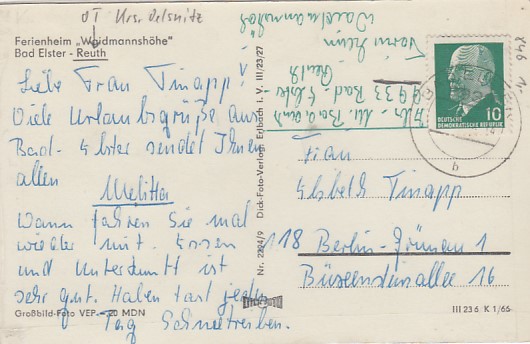 OT Krs. Oelsnitz
Ferienheim „Waidmannshöhe"
Bad Elster - Reuth
Liebe Frau Tinapp!
Viele Urlaubsgrüße aus
Bad-Elster sendet Ihnen
allen
Melitta
Wann fahren Sie mal
wieder mit. Essen
und Unterkunft ist
sehr gut. Haben fast jeden
Tag Schneetreiben.
Großbild-Foto VEP –20 MDN
Nr. 2224/9 Dick-Foto-Verlag, Erlbach i. V. III/23/27
9933 Bad Elster
DEUTSCHE
DEMOKRATISCHE REPUBLIK
10
Frau
Elsbeth Tinapp
118 Berlin-Grünau 1
Büxensteinallee 16
III 23 6 K 1/66